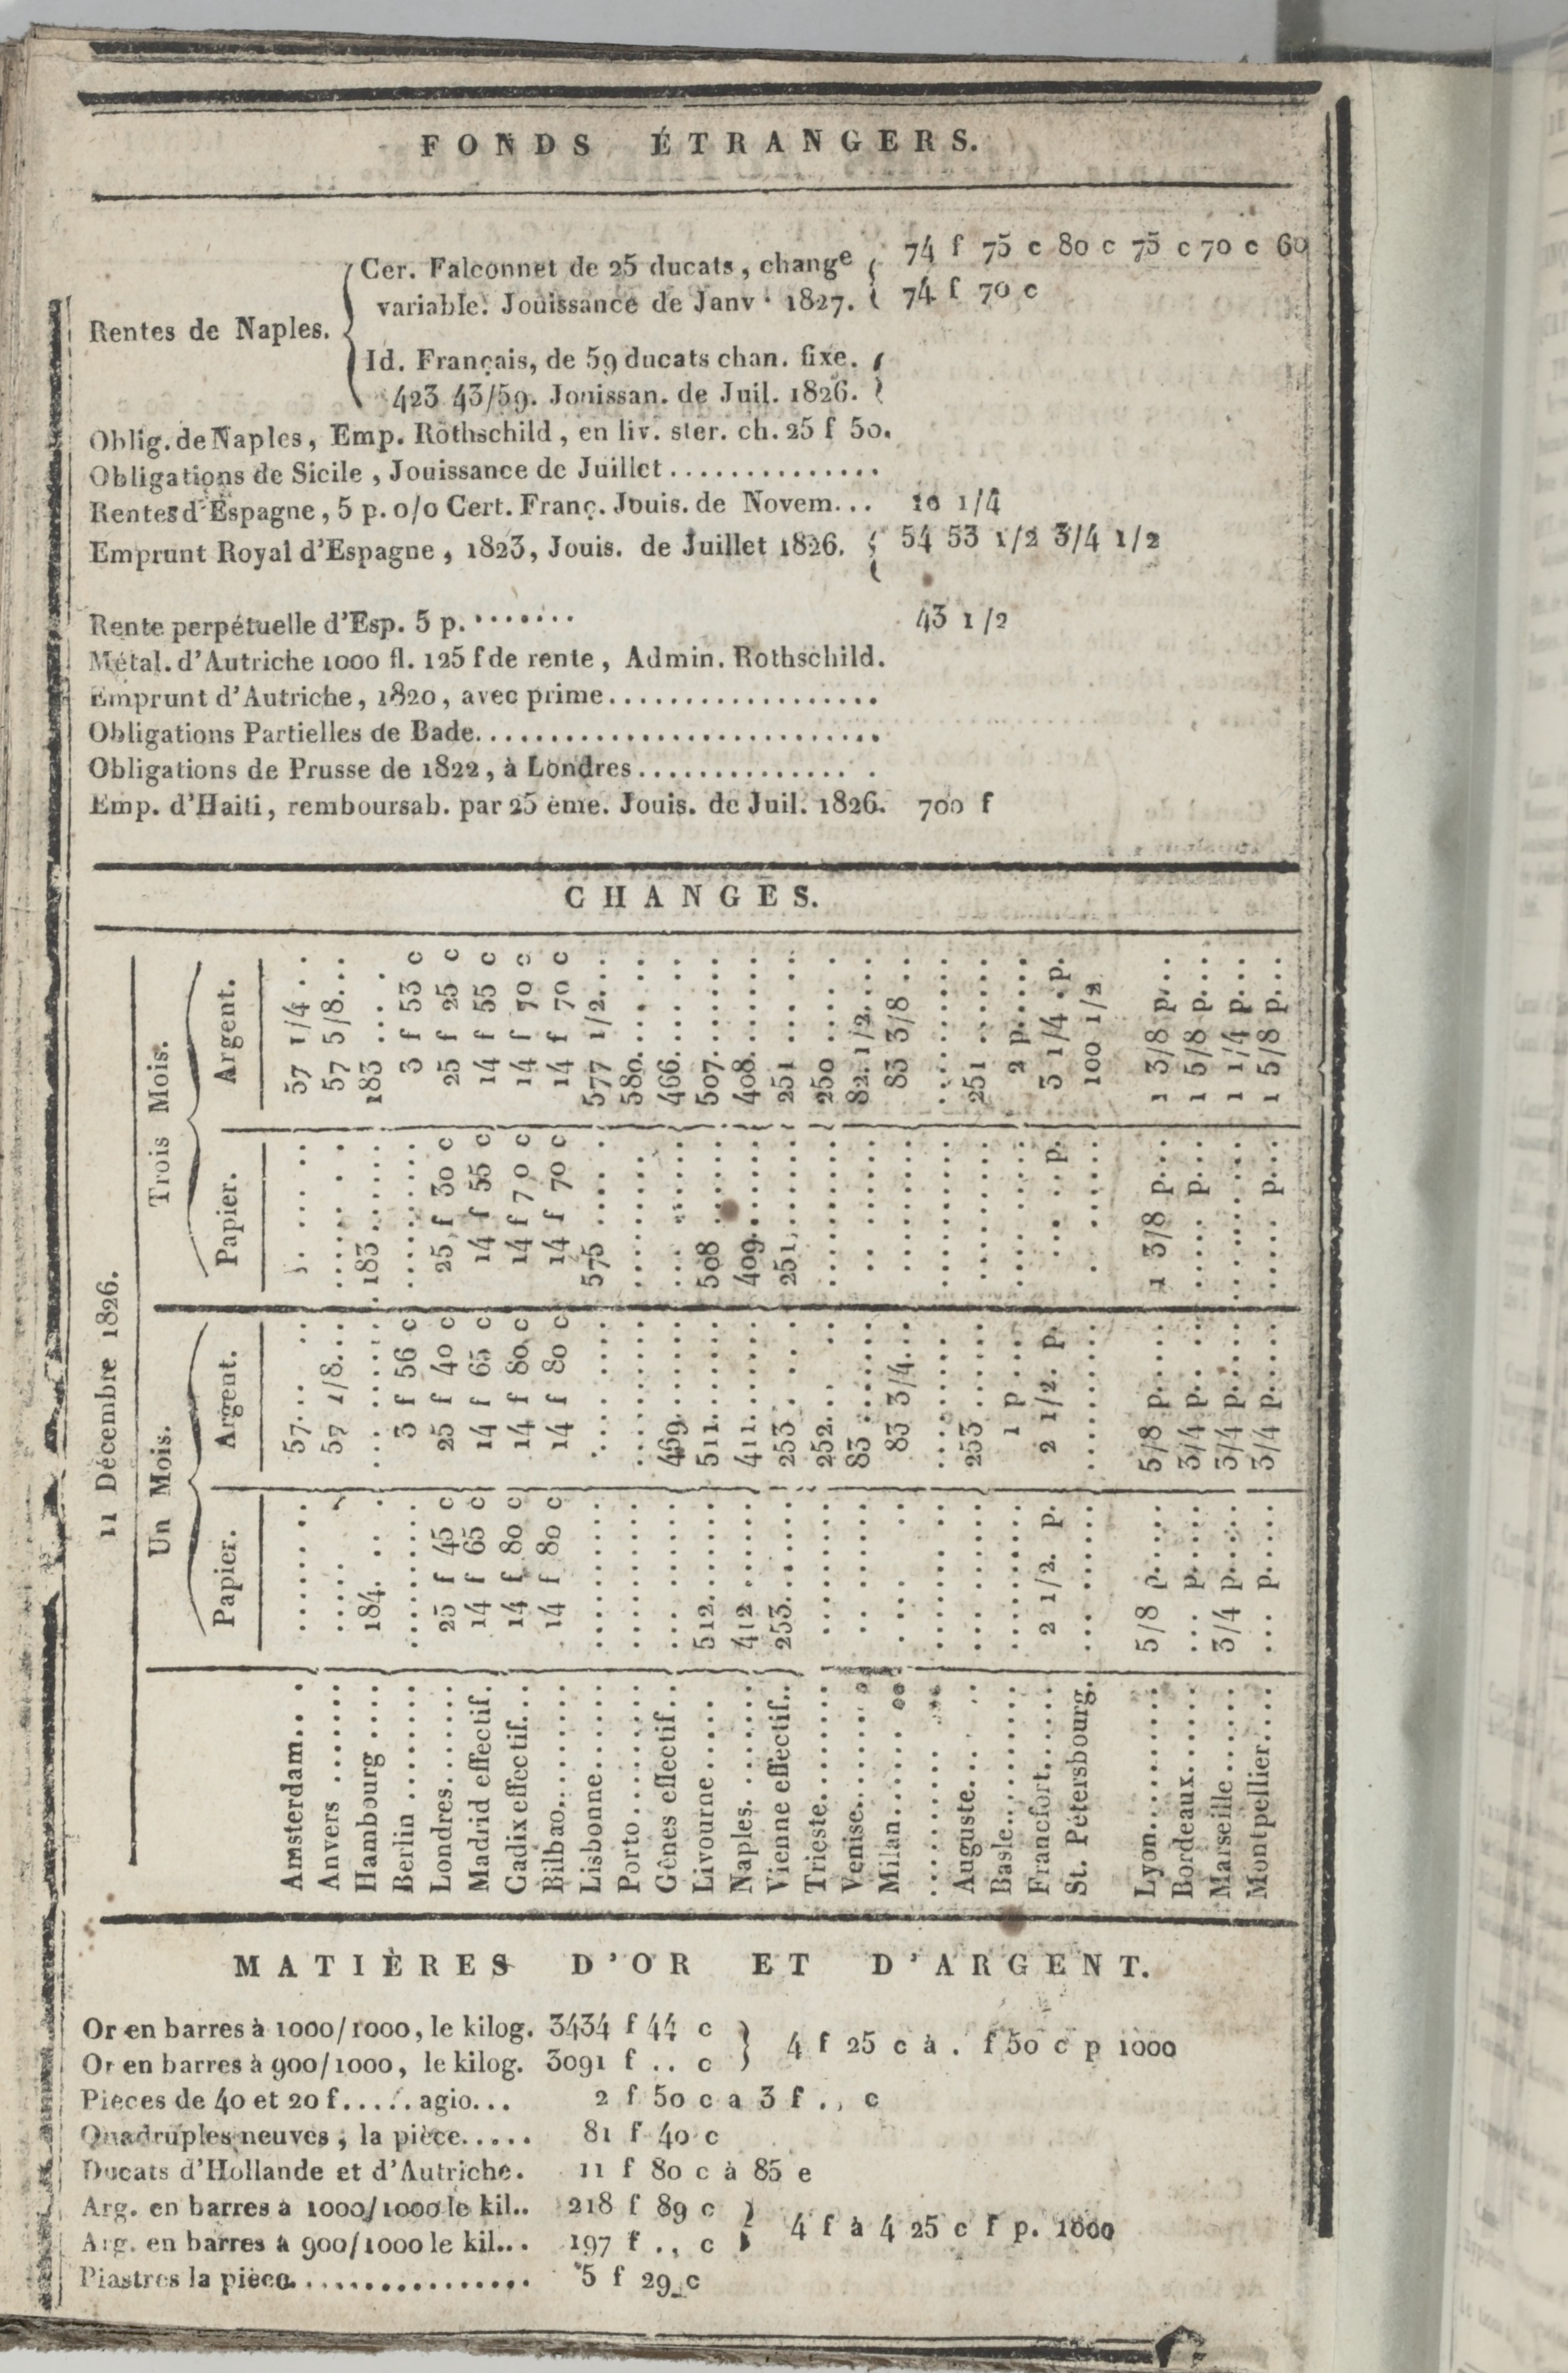 FONDS ÉTRANGERS.
Rentes de Naples.
Cer. Falconnet de 25 ducats, change 74 f 75 c 80 c 75 c 70 c 60
variable. Jouissance de Janv. 1827. 74 f 70 c
Id. Français, de 59 ducats chan. fixe.
423 43/59. Jouissan. de Juil. 1826.
Oblig. de Naples, Emp. Rothschild, en liv. ster. ch. 25 f 50.
Obligations de Sicile, Jouissance de Juillet..............
Rentes d'Espagne, 5 p. o/o Cert. Franç. Jouis. de Novem... 10 1/4
Emprunt Royal d'Espagne, 1823, Jouis. de Juillet 1826. 54 53 1/2 3/4 1/2
Rente perpétuelle d'Esp. 5 p. ....... 43 1/2
Métal. d'Autriche 1000 fl. 125 f de rente, Admin. Rothschild.
Emprunt d'Autriche, 1820, avec prime..................
Obligations Partielles de Bade...........................
Obligations de Prusse de 1822, à Londres...............
Emp. d'Haiti, remboursab. par 25 ème. Jouis. de Juil. 1826. 700 f
CHANGES.
11 Décembre 1826.
Un Mois. Trois Mois.
Papier. Argent. Papier. Argent.
Amsterdam... ....... 57... ...... 57 1/4 ..
Anvers ....... ..... 57 1/8.... ...... 57 5/8...
Hambourg .... 184. .. ....... 183 ...... 183 ....
Berlin ........ ........ 3 f 56 c ........ 3 f 53 c
Londres....... 25 f 45 c 25 f 40 c 25 f 30 c 25 f 25 c
Madrid effectif. 14 f 65 c 14 f 65 c 14 f 55 c 14 f 55 c
Cadix effectif... 14 f 80 c 14 f 80 c 14 f 70 c 14 f 70 c
Bilbao......... 14 f 80 c 14 f 80 c 14 f 70 c 14 f 70 c
Lisbonne....... ........ ........ 575 .... 577 1/2...
Porto......... ........ ........ ........ 580.....
Gènes effectif... ........ 469........ ........ 466.....
Livourne ..... 512....... 511....... 508 ...... 507.......
Naples. ....... 412 ...... 411....... 409....... 408.......
Vienne effectif.. 253...... 253 ... 251....... 251 ....
Trieste........ ........ 252... ........ 250 .....
Venise........ ...... 83 ...... ........ 82. 1/2....
Milan....... .... 83 3/4.... ........ 83 3/8 ..
.......... ........ ........ ........ ........
Auguste... ........ 253 ...... ........ 251 ......
Basle.......... ........ 1 p .... ........ 2 p.....
Francfort...... 2 1/2. p. 2 1/2. p. .... p. 3 1/4 . p.
St. Pétersbourg. ........ ........ ...... 100 1/2
Lyon.......... 5/8 p..... 5/8 p..... 1 3/8 p... 1 3/8 p...
Bordeaux....... ... p..... 3/4 p.... ..... p... 1 5/8 p...
Marseille ...... 3/4 p..... 3/4 p..... ........ 1 1/4 p...
Montpellier.... ... p..... 3/4 p..... ..... p... 1 5/8 p...
MATIÈRES D'OR ET D'ARGENT.
Or en barres à 1000/1000, le kilog. 3434 f 44 c
4 f 25 c à . f 50 c p 1000
Or en barres à 900/1000, le kilog. 3091 f .. c
Pièces de 40 et 20 f...... agio... 2 f 50 c a 3 f .. c
Quadruples neuves, la pièce..... 81 f 40 c
Ducats d'Hollande et d'Autriche. 11 f 80 c à 85 e
Arg. en barres à 1000/1000 le kil.. 218 f 89 c
4 f à 4 25 c f p. 1000
Arg. en barres à 900/1000 le kil... 197 f .. c
Piastres la pièce................ 5 f 29 c